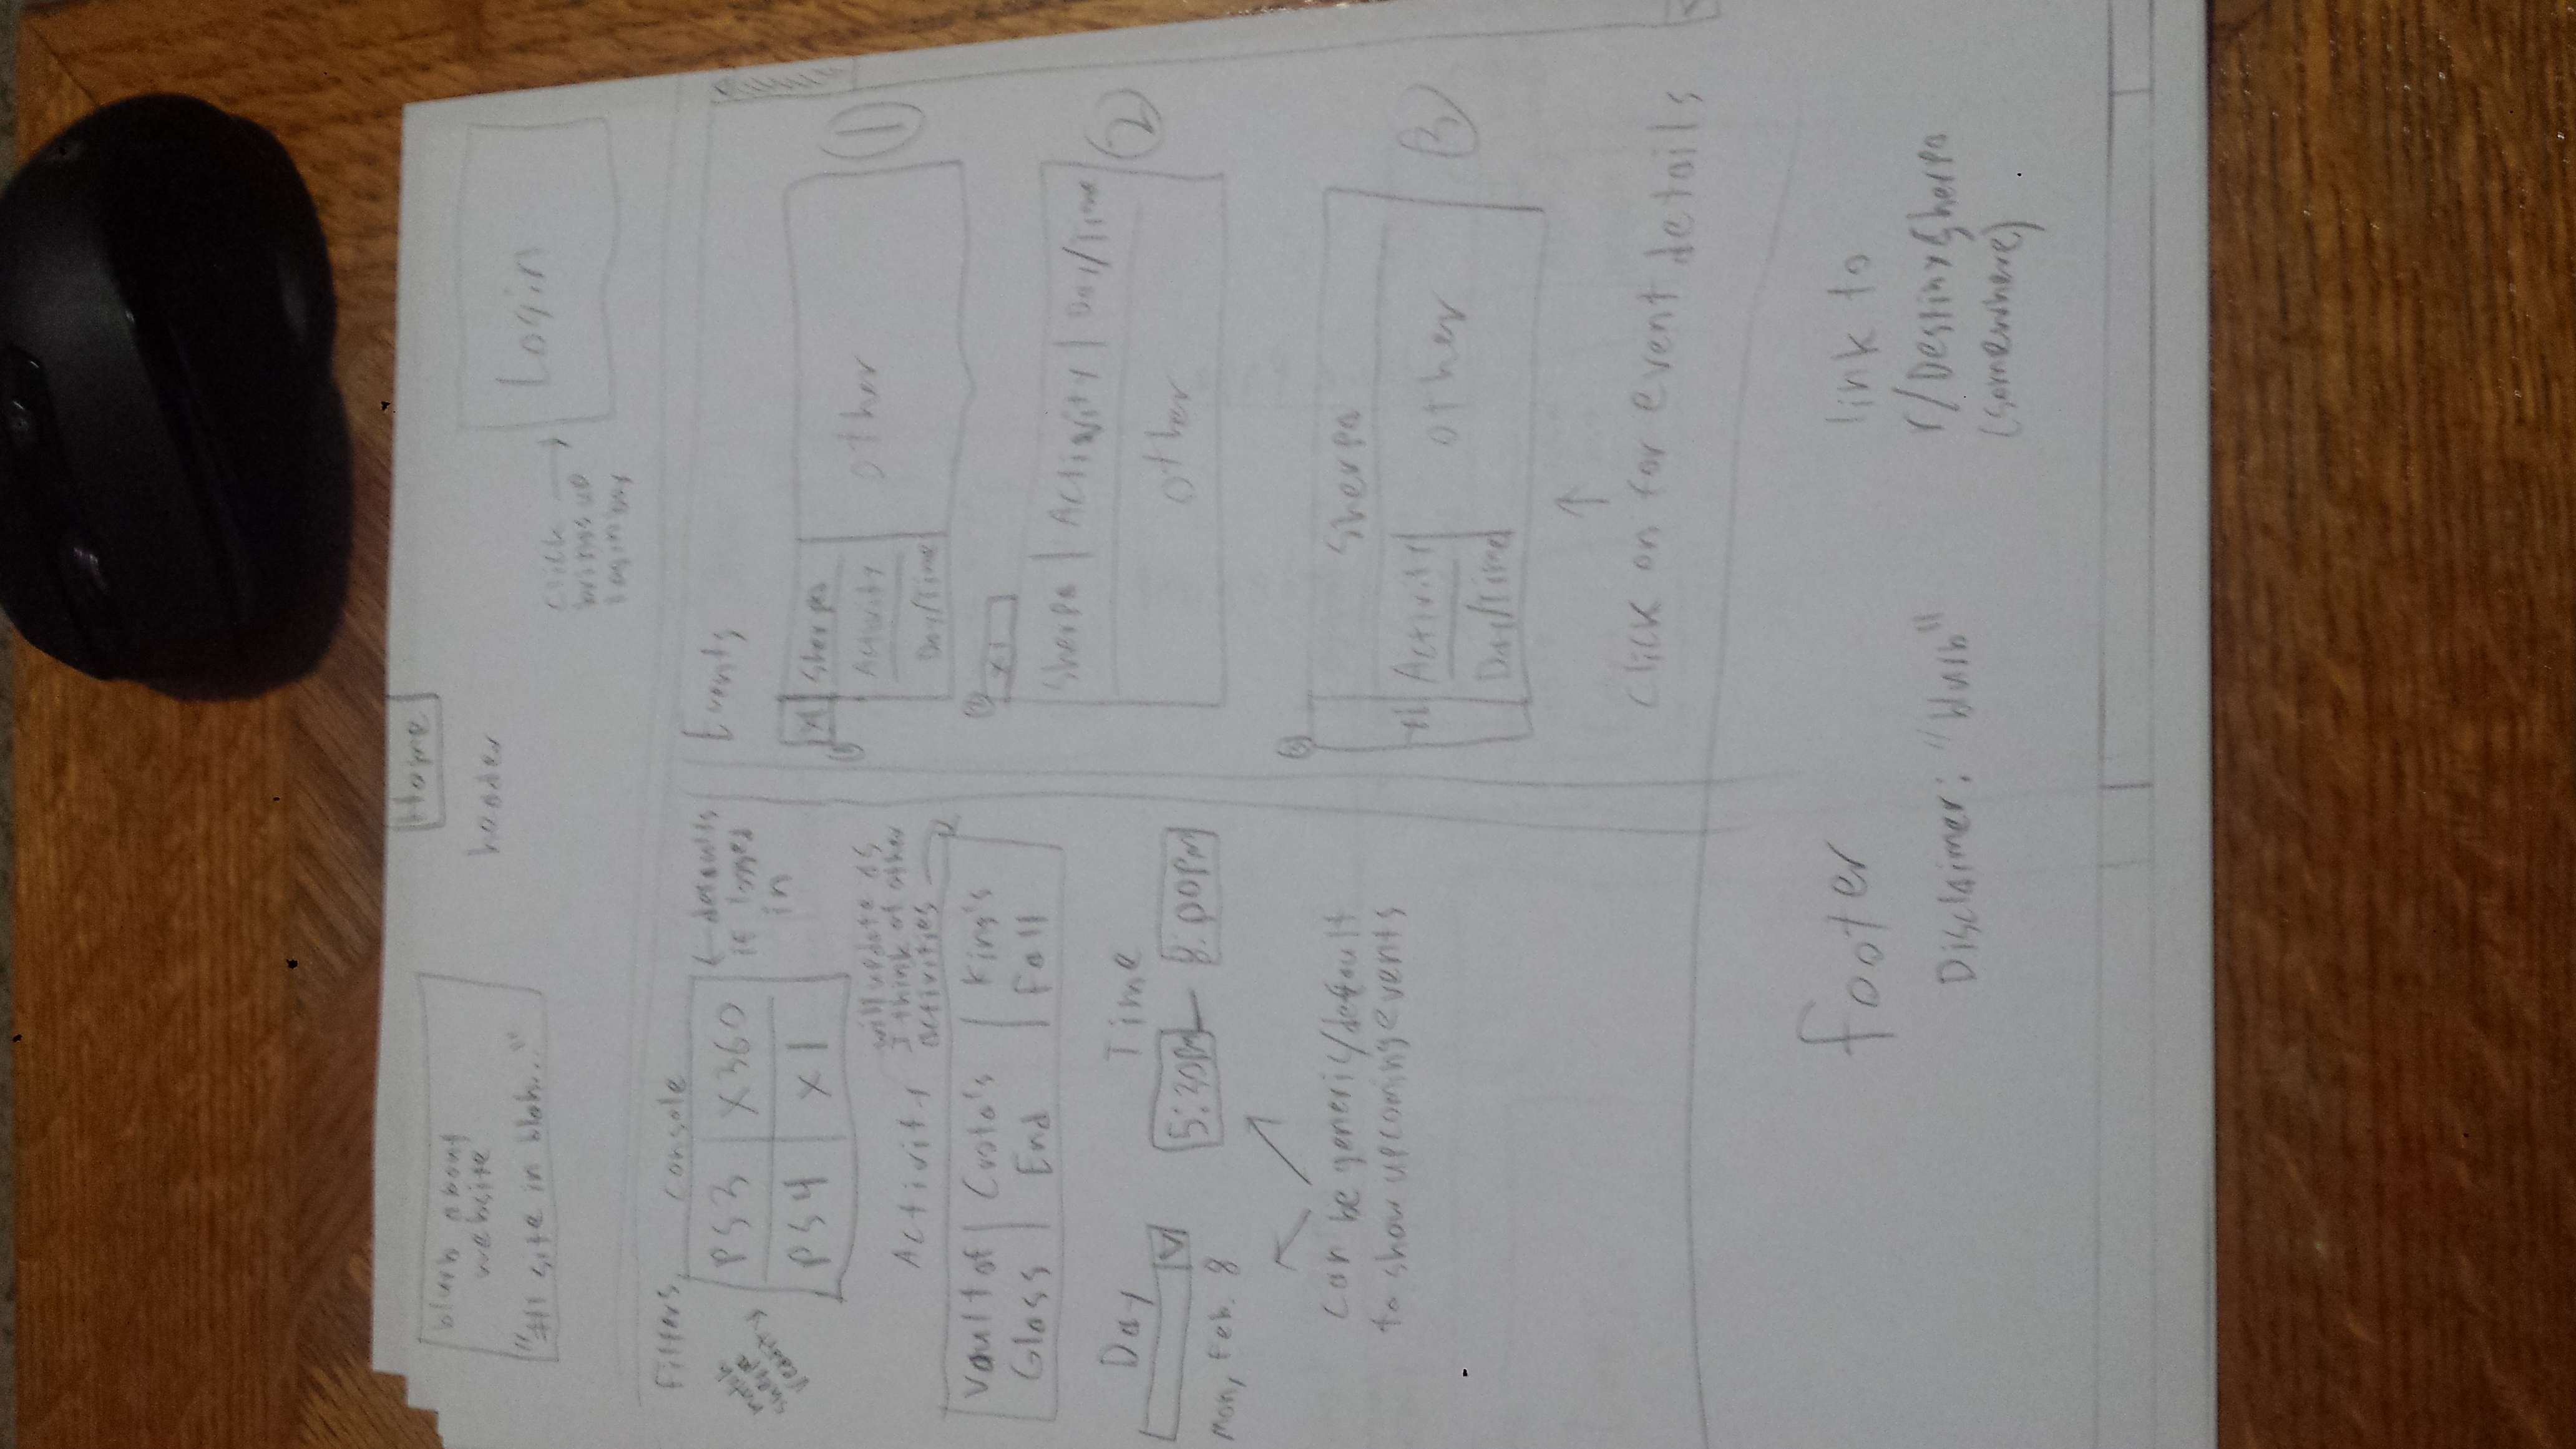 Home
header
blurb about
website
"#1 site in blah..."
click
brings up
login box
Login
Filters
console
PS3 | X360
PS4 | X1
← defaults
if logged
in
match
sherpa
Activity
will update as
I think of other
activities
Vault of
Glass
Crota's
End
King's
Fall
Day
Mon, Feb. 8
Time
5:30PM — 8:00PM
can be generic/default
to show upcoming events
Events
X1
Sherpa
Activity
Day/Time
other
1
2
X1
Sherpa | Activity | Day/Time
other
2
3
Sherpa
X1
Activity
Day/Time
other
3
click on for event details
footer
Disclaimer: "blurb"
link to
r/DestinySherpa
(somewhere)